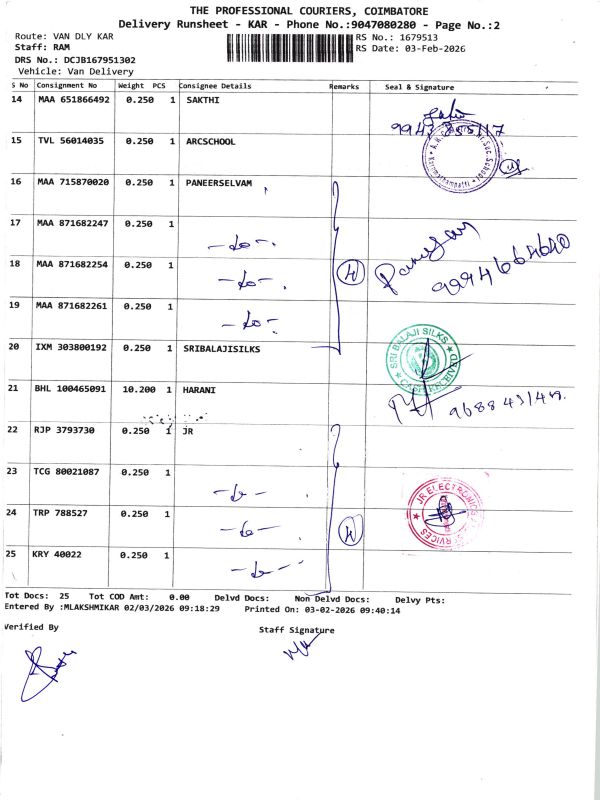 THE PROFESSIONAL COURIERS, COIMBATORE
Delivery Runsheet - KAR - Phone No.:9047080280 - Page No.:2
Route: VAN DLY KAR
RS No.: 1679513
Staff: RAM
RS Date: 03-Feb-2026
DRS No.: DCJB167951302
Vehicle: Van Delivery
S No Consignment No Weight PCS Consignee Details Remarks Seal & Signature
14 MAA 651866492 0.250 1 SAKTHI
15 TVL 56014035 0.250 1 ARCSCHOOL
16 MAA 715870020 0.250 1 PANEERSELVAM
17 MAA 871682247 0.250 1
-do-
18 MAA 871682254 0.250 1
-do-
19 MAA 871682261 0.250 1
-do-
9994664640
20 IXM 303800192 0.250 1 SRIBALAJISILKS
SRI BALAJI SILKS
21 BHL 100465091 10.200 1 HARANI
22 RJP 3793730 0.250 1 JR
23 TCG 80021087 0.250 1
JR ELECTRONICS
SERVICES
24 TRP 788527 0.250 1
25 KRY 40022 0.250 1
Tot Docs: 25 Tot COD Amt: 0.00 Delvd Docs: Non Delvd Docs: Delvy Pts:
Entered By :MLAKSHMIKAR 02/03/2026 09:18:29 Printed On: 03-02-2026 09:40:14
Verified By
Staff Signature